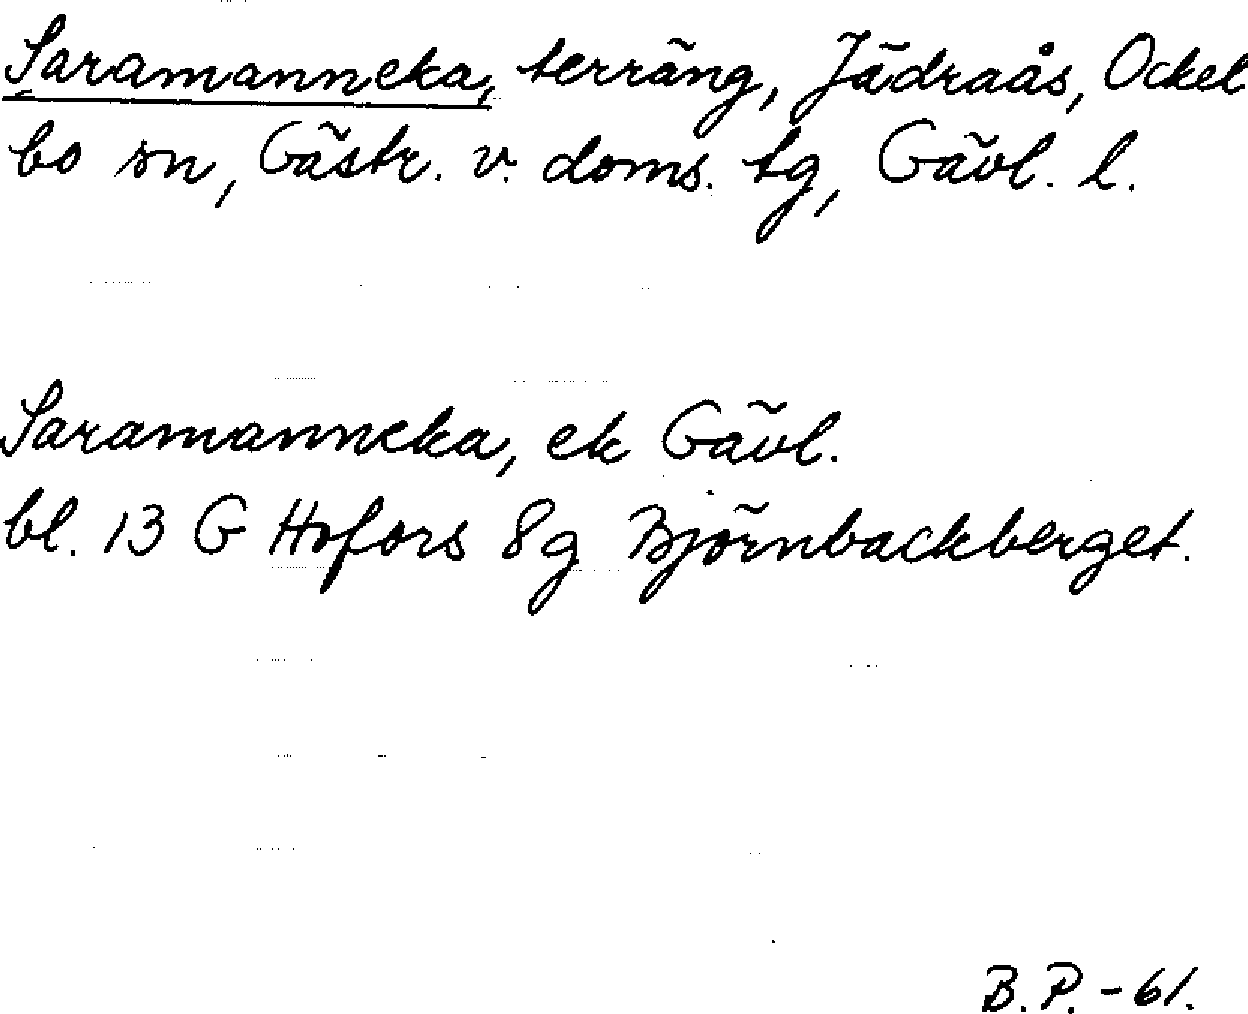 Saramanneka, terräng, Jädraås, Ockel
bo sn, Gästr. v. doms. tg, Gävl. l.
Saramanneka, ek Gävl.
bl. 13 G Hofors 8g Björnbackberget.
B.P.-61.